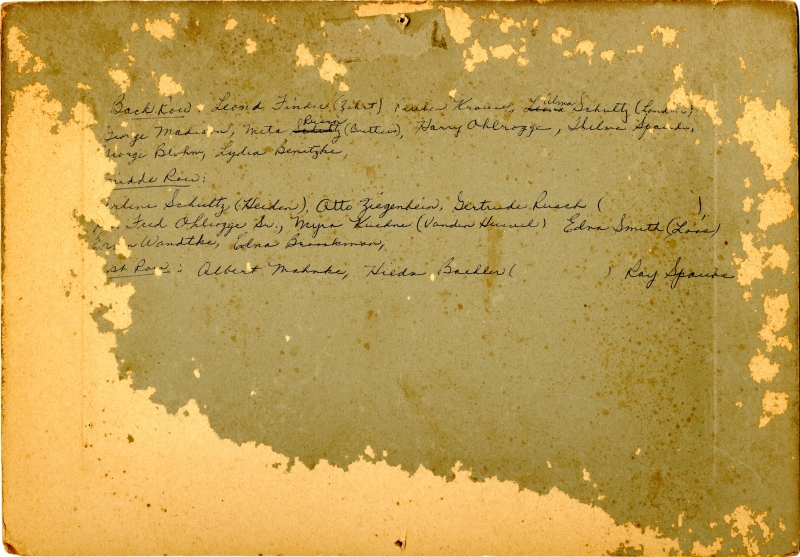 Back Row Leona Finder (Zibet), Reuben Krause, Leona Wilma Schultz (Landon)
George Madison, Meta Schultz Reisner (Butters), Harry Ohlrogge, Thelma Spaude,
George Blohm, Lydia Benitzke,
Middle Row:
Arlene Schultz (Heiden), Otto Ziegenhein, Gertrude Rusch ( )
Fred Ohlrogge Sr., Myra Kuehne (Vanden Heuvel) Edna Smith (Loos)
Wandtke, Edna Brinkman,
1st Row: Albert Mahnke, Hilda Baehler ( ) Ray Spaude